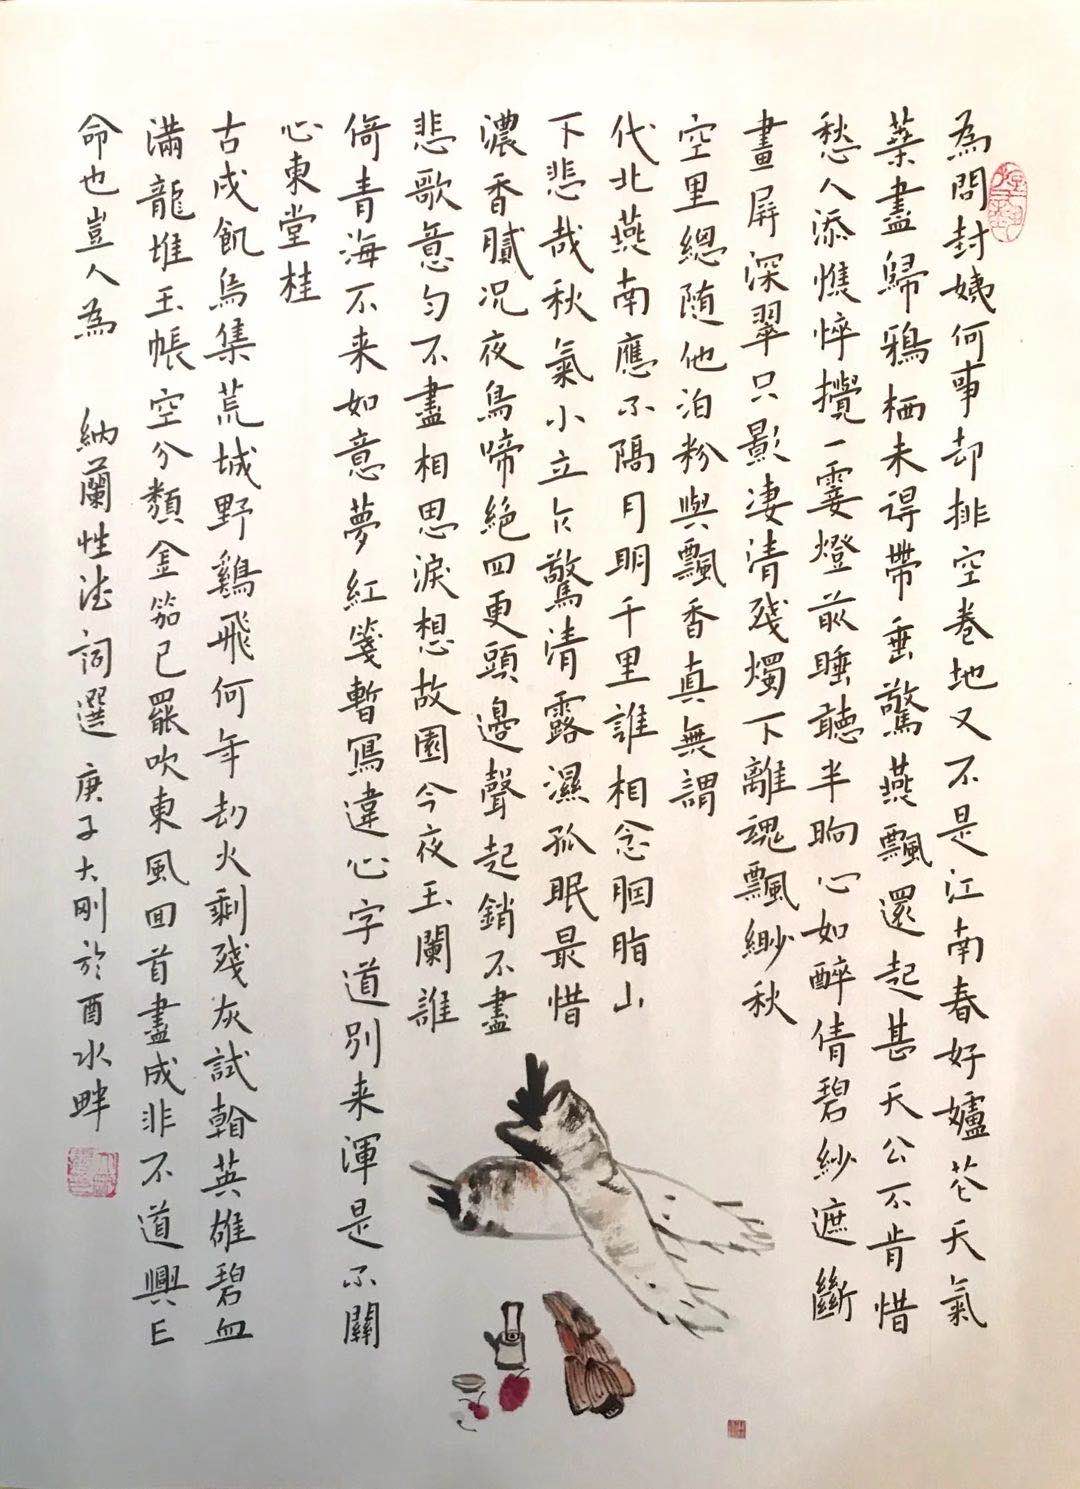 為問封姨何事却排空卷地又不是江南春好妒花天氣
葉盡歸鴉栖未得帶垂驚燕飄還起甚天公不肯惜
愁人添憔悴攪一霎燈前睡聽半晌心如醉倩碧紗遮斷
畫屏深翠只影淒清残燭下離魂飄緲秋
空里總随他泊粉與飄香真無謂
代北燕南應不隔月明千里誰相念胭脂山
下悲哉秋氣小立乍驚清露濕孤眠最惜
濃香膩况夜烏啼絶四更頭邊聲起銷不盡
悲歌意匀不盡相思淚想故園今夜玉闌誰
倚青海不来如意夢紅箋暫寫違心字道别来渾是不關
心東堂桂
古戍飢烏集荒城野鷄飛何年劫火剩殘灰試看英雄碧血
满龍堆玉帳空分類金笳已罷吹東風回首盡成非不道興亡
命也豈人為 納蘭性德詞選 庚子大剛於酉水畔